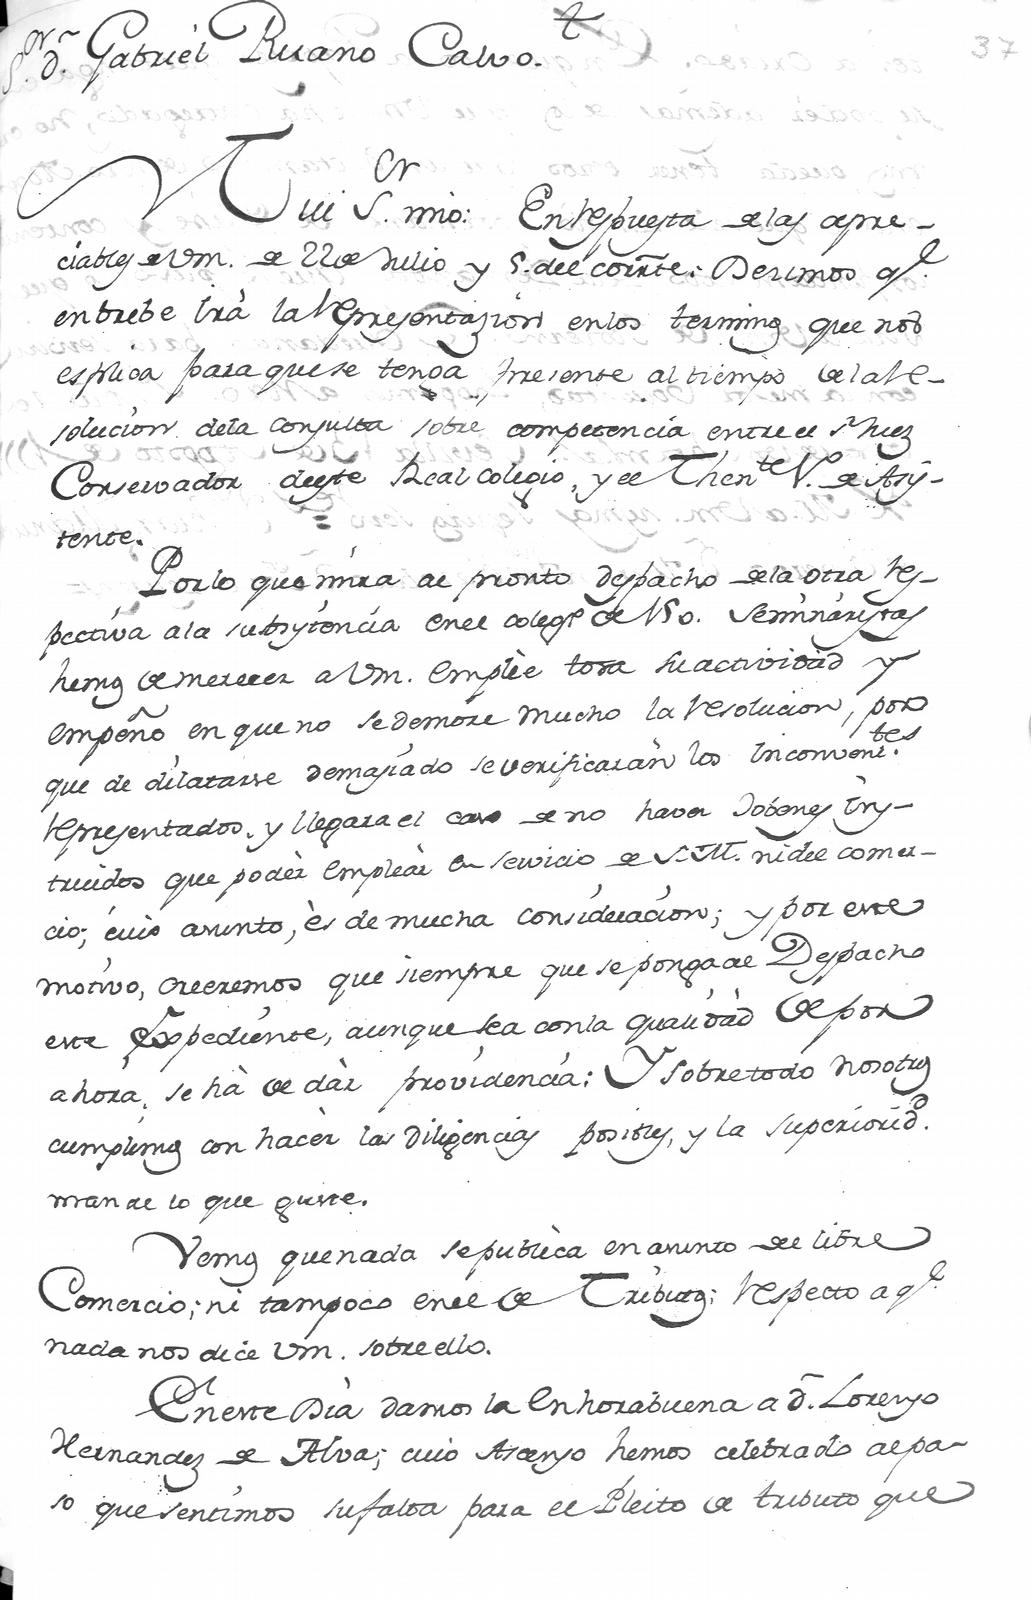 37
S.or d.n Gabriel Ruano Calvo.
Mui S.or mio: En respuesta de las apre-
ciables de Vm. de 22 de Julio y 5. del corr.te: Dezimos q.e
en brebe irà la representazion en los terminos que nos
esplica para que se tenga presente al tiempo de la re-
solucion de la Consulta sobre competencia entre el S.r Juez
Conservador deste Real colegio, y el Then.te V.o de Asis-
tente.
Por lo que mira al pronto despacho de la otra res-
pectiva a la subsistencia en el coleg.o de 150. Seminaristas
hemos de merecer a Vm. emplèe toda su actividad y
empeño en que no se demore mucho la resolucion, por
que de dilatarse demasiado se verificaràn los inconveni.tes
representados, y llegara el caso de no haver Jobenes ins-
truidos que podèr emplèar en servicio de S.M. ni del comer-
cio; cuio asunto, ès de mucha consideracion; y por este
motivo, creeremos que siempre que se ponga al Despacho
este Expediente, aunque sea con la qualidad de por
ahora, se hà de dàr providencia: Y sobre todo nosotros
cumplimos con hacèr las diligencias posibles, y la superiorid.d
mande lo que guste.
Vemos que nada se publìca en asunto de libre
Comercio; ni tampoco en el de Tributos; respecto a q.e
nada nos dice Vm. sobre ello.
En este Dia damos la Enhorabuena a d.n Lorenzo
Hernandez de Alva; cuio Ascenso hemos celebrado al pa-
so que sentimos su falta para el Pleito de tributo que